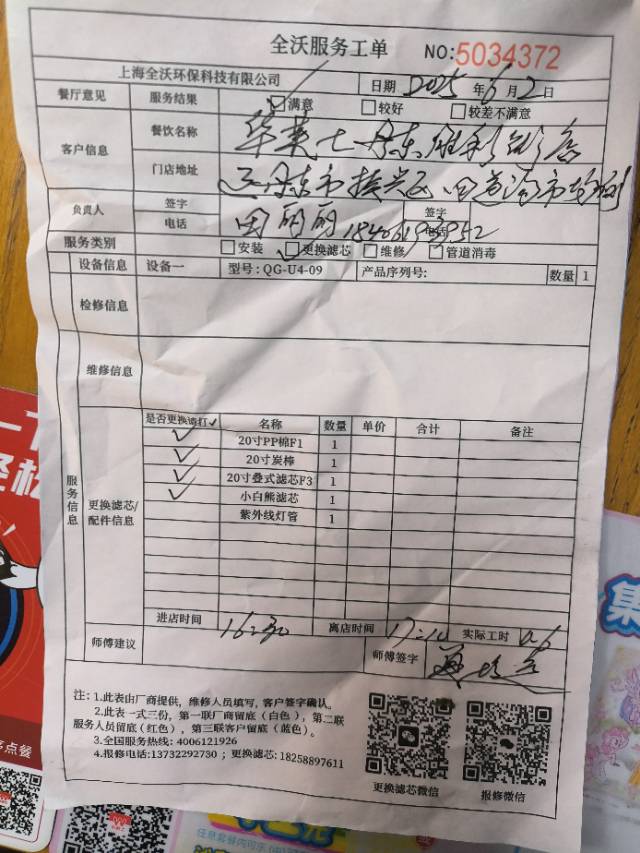 全沃服务工单 NO:5034372
上海全沃环保科技有限公司 日期 2025 年 6 月 2 日
餐厅意见 服务结果 满意 较好 较差不满意
客户信息 餐饮名称 华莱士丹东胜利
门店地址 辽宁丹东市振兴区
负责人 签字 田丽丽 签字
电话 电话
服务类别 安装 更换滤芯 维修 管道消毒
设备信息 设备一 型号: QG-U4-09 产品序列号: 数量 1
检修信息
维修信息
服务信息
更换滤芯/
配件信息
是否更换请打✓ 名称 数量 单价 合计 备注
✓ 20寸PP棉F1 1
✓ 20寸炭棒 1
✓ 20寸叠式滤芯F3 1
✓ 小白熊滤芯 1
紫外线灯管 1
进店时间 16:30 离店时间 17:10 实际工时 0.6
师傅建议 师傅签字
注: 1.此表由厂商提供, 维修人员填写, 客户签字确认。
2.此表一式三份, 第一联厂商留底 (白色), 第二联
服务人员留底(红色), 第三联客户留底 (蓝色)。
3.全国服务热线: 4006121926
4.报修电话:13732292730 ; 更换滤芯: 18258897611
更换滤芯微信 报修微信
点餐
集